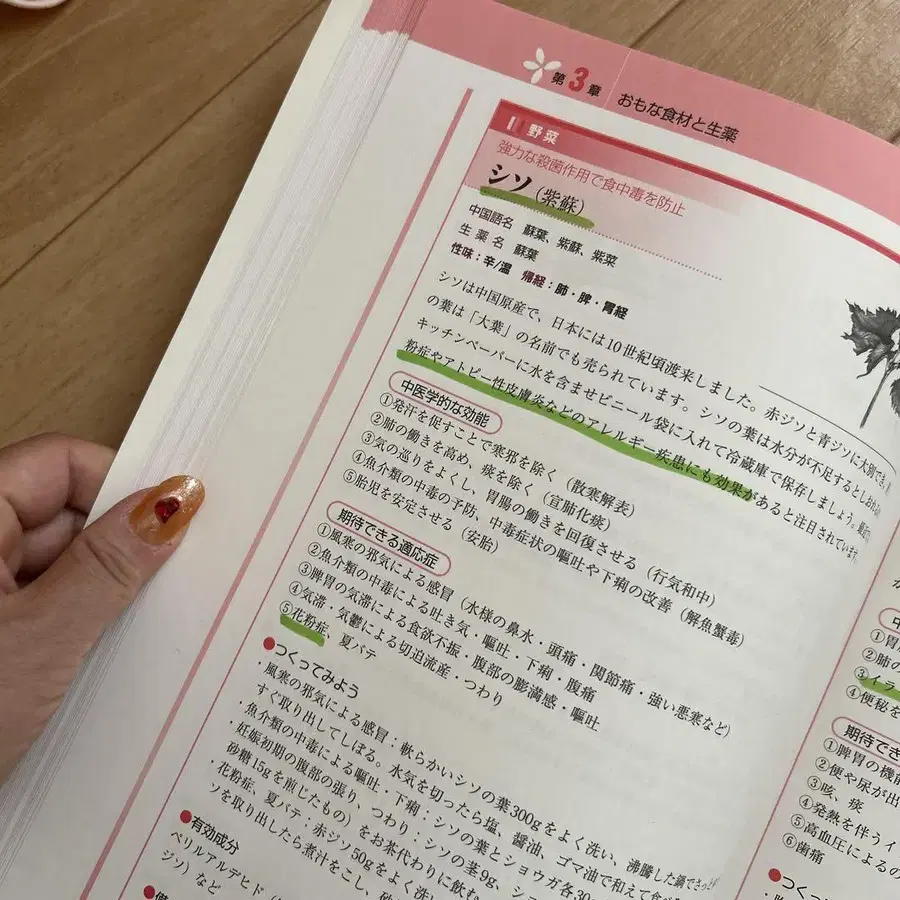 第3章 おもな食材と生薬
I 野菜
強力な殺菌作用で食中毒を防止
シソ(紫蘇)
中国語名 蘇葉、紫蘇、紫菜
生薬名 蘇葉
性味:辛/温 帰経:肺・脾・胃経
シソは中国原産で、日本には10世紀頃渡来しました。赤ジソと青ジソに大別でき、
の葉は「大葉」の名前でも売られています。シソの葉は水分が不足するとしおれ
キッチンペーパーに水を含ませビニール袋に入れて冷蔵庫で保存しましょう。最近
粉症やアトピー性皮膚炎などのアレルギー疾患にも効果があると注目されています。
中医学的な効能
①発汗を促すことで寒邪を除く(散寒解表)
②肺の働きを高め、痰を除く(宣肺化痰)
③気の巡りをよくし、胃腸の働きを回復させる(行気和中)
④魚介類の中毒の予防、中毒症状の嘔吐や下痢の改善(解魚蟹毒)
⑤胎児を安定させる(安胎)
期待できる適応症
①風寒の邪気による感冒(水様の鼻水・頭痛・関節痛・強い悪寒など)
②魚介類の中毒による吐き気・嘔吐・下痢・腹痛
③脾胃の気滞による食欲不振・腹部の膨満感・嘔吐
④気滞・気鬱による切迫流産・つわり
⑤花粉症、夏バテ
●つくってみよう
・風寒の邪気による感冒:軟らかいシソの葉300gをよく洗い、沸騰した鍋でさっと
すぐ取り出してしぼる。水気を切ったら塩、醤油、ゴマ油で和えて食べ
・魚介類の中毒による嘔吐・下痢:シソの葉とショウガ各30
・妊娠初期の腹部の張り、つわり:シソの茎9g、シ
砂糖15gを煎じたもの)をお茶代わりに飲む
・花粉症、夏バテ:赤ジソ50gをよく洗い
ソを取り出したら煮汁をこし、砂
●有効成分
ペリルアルデヒド
ジソ)など
①胃
②肺の
③イラ
④便秘を
期待でき
①脾胃の機能
②便や尿が出
③咳、痰
④発熱を伴うイ
⑤高血圧によるの
⑥歯痛
●つく